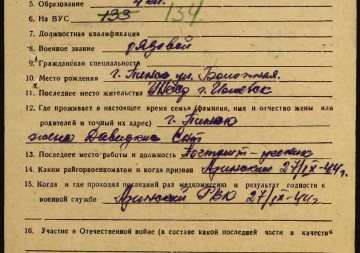 5. Образование 4 кл.
6. На ВУС 133 134
7. Должностная квалификация
8. Военное звание рядовой
9. Гражданская специальность
10. Место рождения г. Пинск ул. Болотная.
11. Последнее место жительства г.
12. Где проживает в настоящее время семья (фамилия, имя и отчество жены или
родителей и точный их адрес) г. Пинск
жена Давидкис
13. Последнее место работы и должность
14. Каким райгорвоенкоматом и когда призван 27/IX-44г.
15. Когда и где проходил последний раз медкомиссию и результат годности к
военной службе РВК 27/IX-44г.
16. Участие в Отечественной войне (в составе какой последней части в качеств